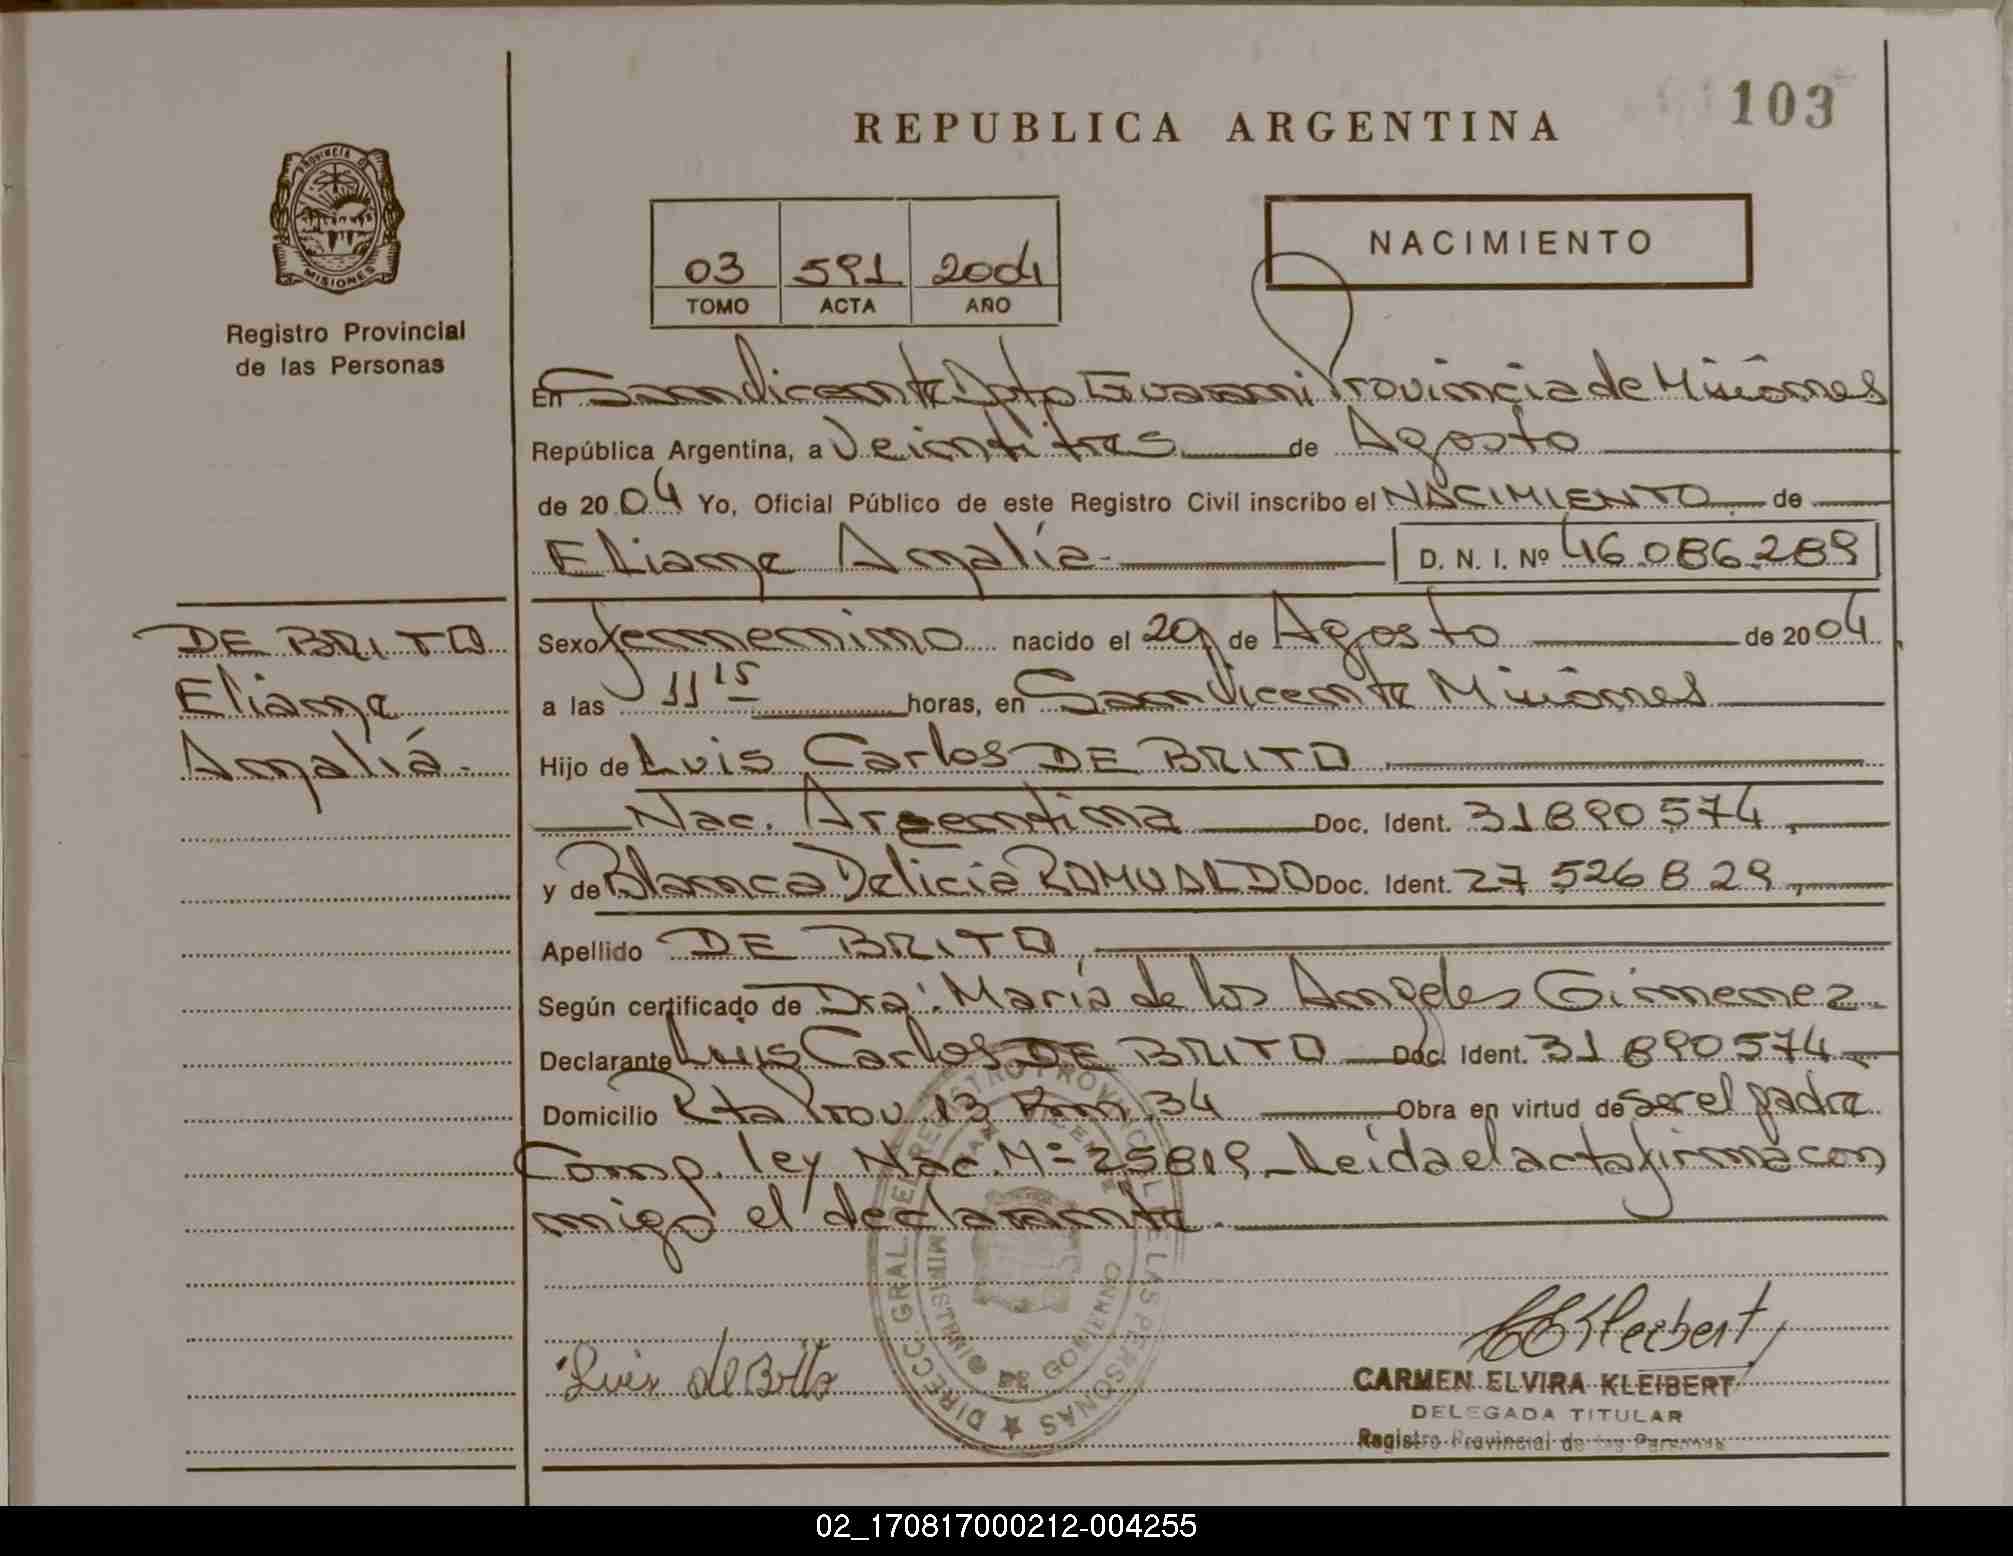 103
REPUBLICA ARGENTINA
PROVINCIA DE
MISIONES
Registro Provincial
de las Personas
03 591 2004
TOMO ACTA AÑO
NACIMIENTO
En San Vicente Dpto Guarani Provincia de Misiones
República Argentina, a Veintitres de Agosto
de 2004 Yo, Oficial Público de este Registro Civil inscribo el NACIMIENTO de
Eliane Amalia- D. N. I. Nº 46.086.289
DE BRITO
Eliane
Amalia-
Sexo femenino nacido el 20 de Agosto de 2004
a las 11 15 horas, en San Vicente Misiones
Hijo de Luis Carlos DE BRITO
Nac. Argentina Doc. Ident. 31890574,
y de Blanca Delicia ROMUALDO Doc. Ident. 27526829,
Apellido DE BRITO,
Según certificado de Dra: María de los Angeles Gimenez
Declarante Luis Carlos DE BRITO Doc. Ident. 31890574
Domicilio Rta Prov 13 Km 34 Obra en virtud de ser el padre
Comp. ley Nac. Nº 25819 Leida el acta firma con
migo el declarante.
DIRECC. GRAL. DEL REGISTRO PROVINCIAL DE LAS PERSONAS
MINISTERIO DE GOBIERNO
Luis de Brito
CEKleibert
CARMEN ELVIRA KLEIBERT
DELEGADA TITULAR
Registro Provincial de las Personas
02_170817000212-004255